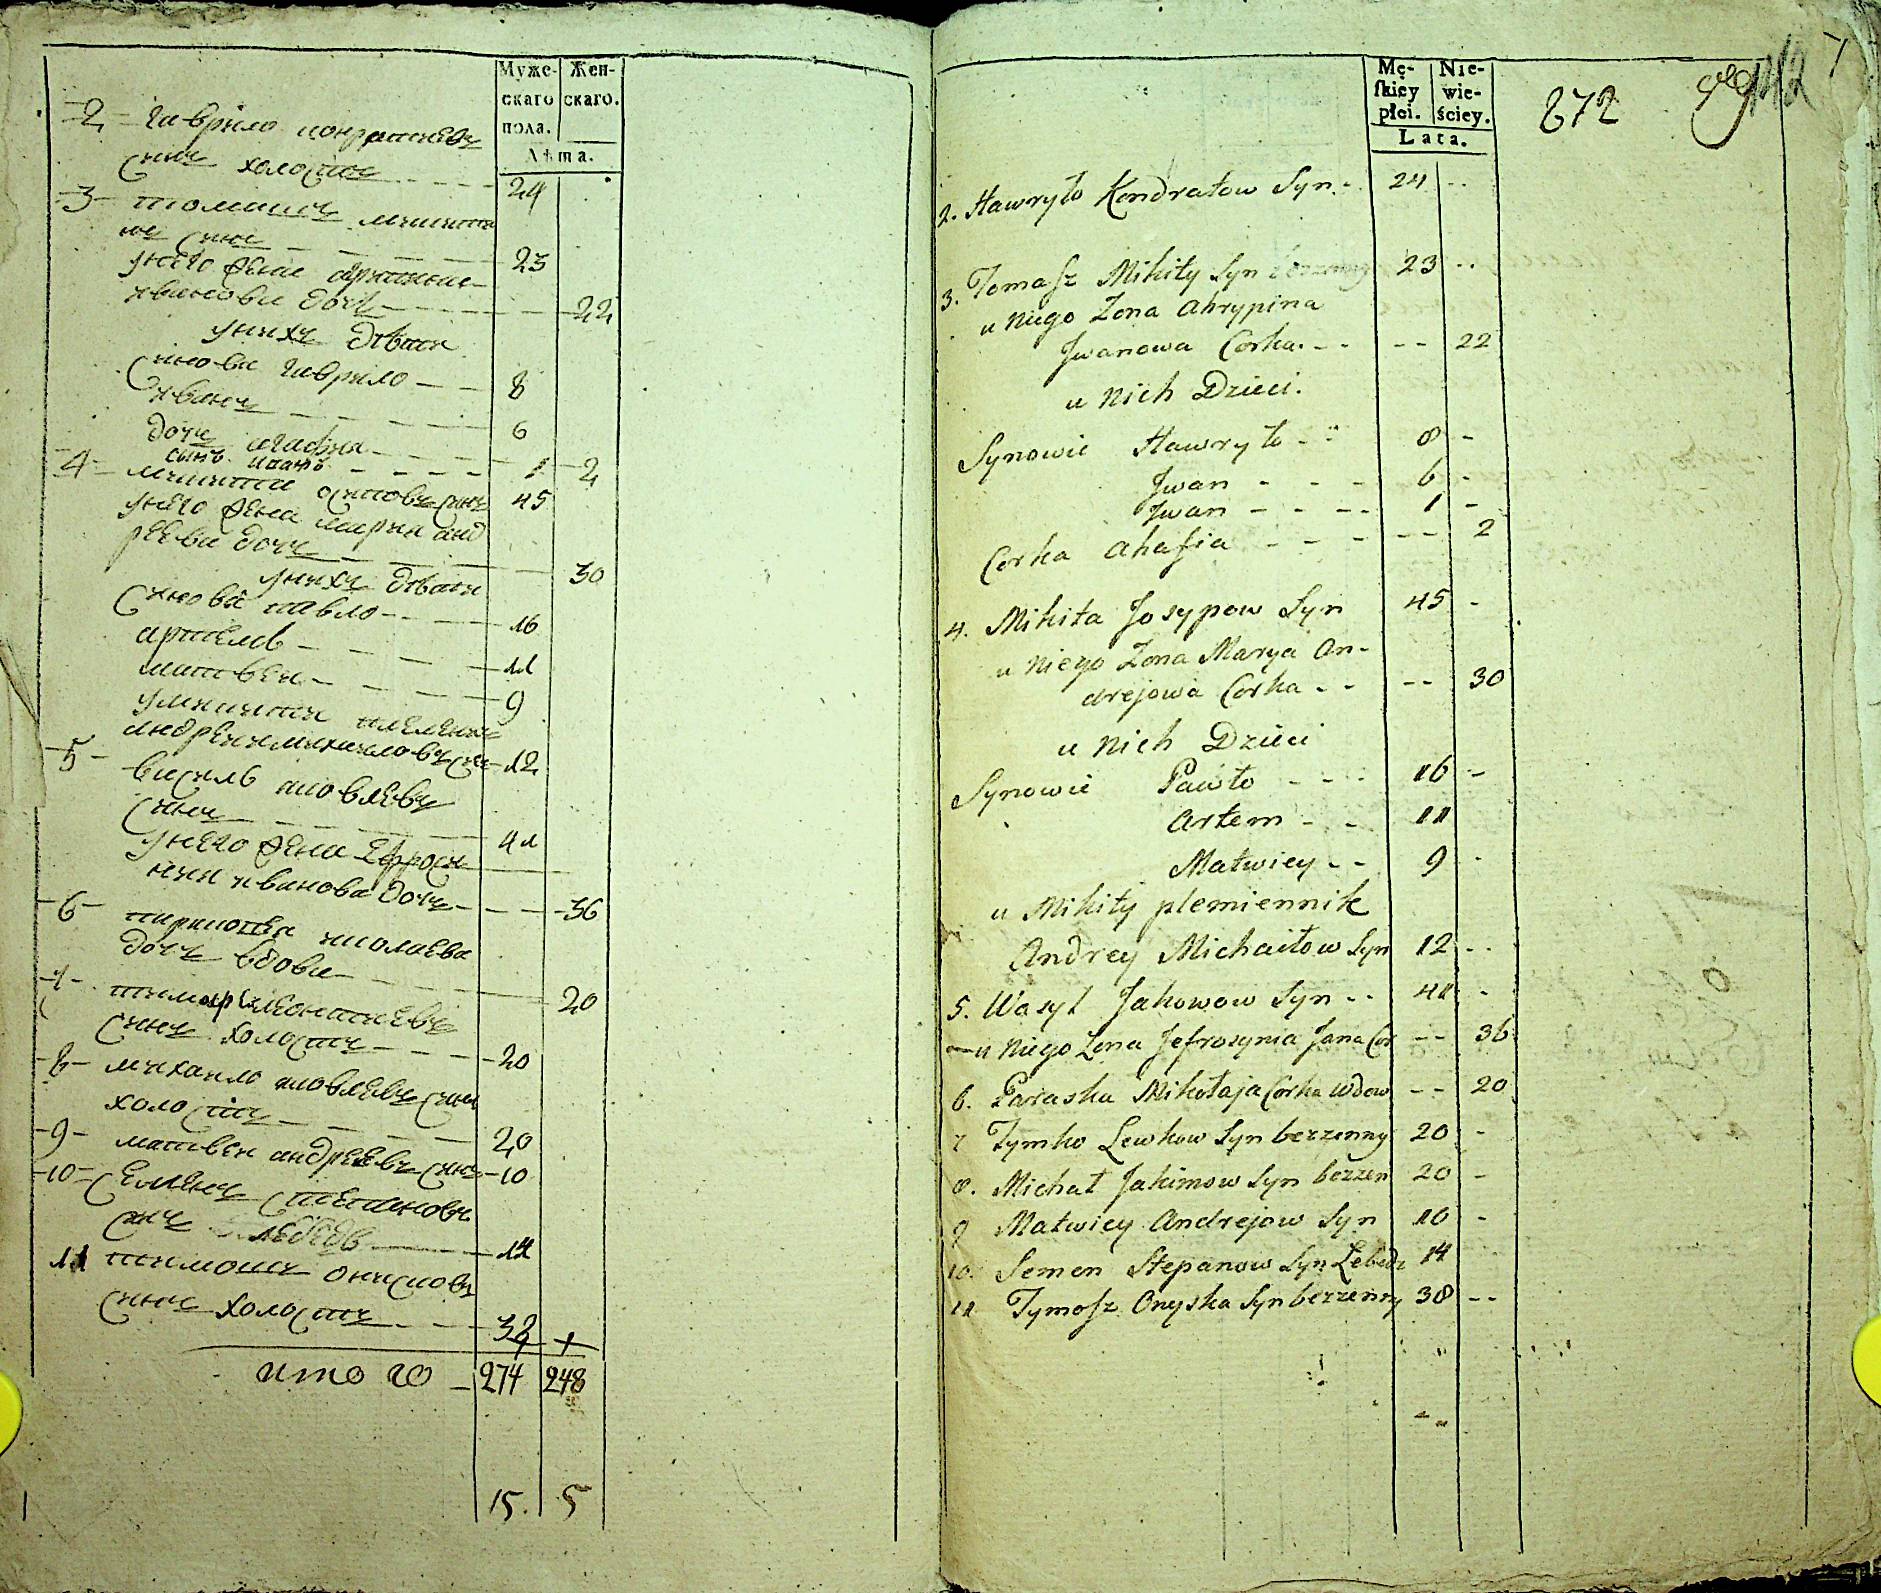 Муже-
скаго
пола.
Жен-
скаго.
Лѣта.
-2- Гаврило Кондратьевъ
синъ холостъ - - - 24
-3- томашъ микитинъ синъ - - - 23
унего жена
иванова дочь - - - 22
унихъ дѣти
синове гаврило - - 8
иванъ - - - 6
дочъ агафия - - - 2
сынъ иванъ - - - - 1
-4- микита осиповъ синъ 45
унего жена мария анд
реева дочъ - - - 30
унихъ дѣти
синове павло - - - 16
артемъ - - - - 11
матвеи - - - - 9
умикити племеникъ
андреи михаиловъ синъ - 12
-5- василь яковлевъ
синъ - - - 41
унего жена Ефроси
ния иванова дочъ - - - 36
-6- николаева
дочъ вдова - - - 20
-7-
синъ холостъ - - - 20
-8- михаило яковлевъ синъ
холостъ - - - 20
-9- матвеи андреевъ синъ - 10
-10- Семенъ степановъ
синъ лебедь - 14
11 тимошъ онисковъ
синъ холостъ - - - 38
итого - 274 248
15. 5
Mę-
skiey
płci.
Nie-
wie-
ściey.
Lata.
272
2. Hawryło Kondratow Syn - 24 - -
3. Tomasz Mikity Syn bezzenny 23 - -
u niego Zona Ahrypina
Jwanowa Corka. - - - - 22
u nich Dzieci.
Synowie Hawryło - - 8 -
Jwan - - - 6 -
Jwan - - - - 1 -
Corka Ahafia - - - - - 2
4. Mikita Josypow Syn 45 -
u niego Zona Marya An-
drejowa Corka - - - - 30
u nich Dzieci
Synowie Pawło - - - 16 -
Artem - - 11
Matwiey - - 9 -
u Mikity plemiennik
Andrey Michaiłow Syn 12 - -
5. Wasyl Jakowow Syn - - 41 -
u niego Zona Jefrosynia Jana Cor - - 36
6. Paraska Mikołaja Corka Wdow - - 20
7 Tymko Lewkow Syn bezzenny 20 -
8. Michał Jakimow Syn bezzen 20 -
9 Matwiey Andrejow Syn 10 -
10. Semen Stepanow Syn Lebedz 14
11 Tymosz Onyska Syn bezzenny 38 - -